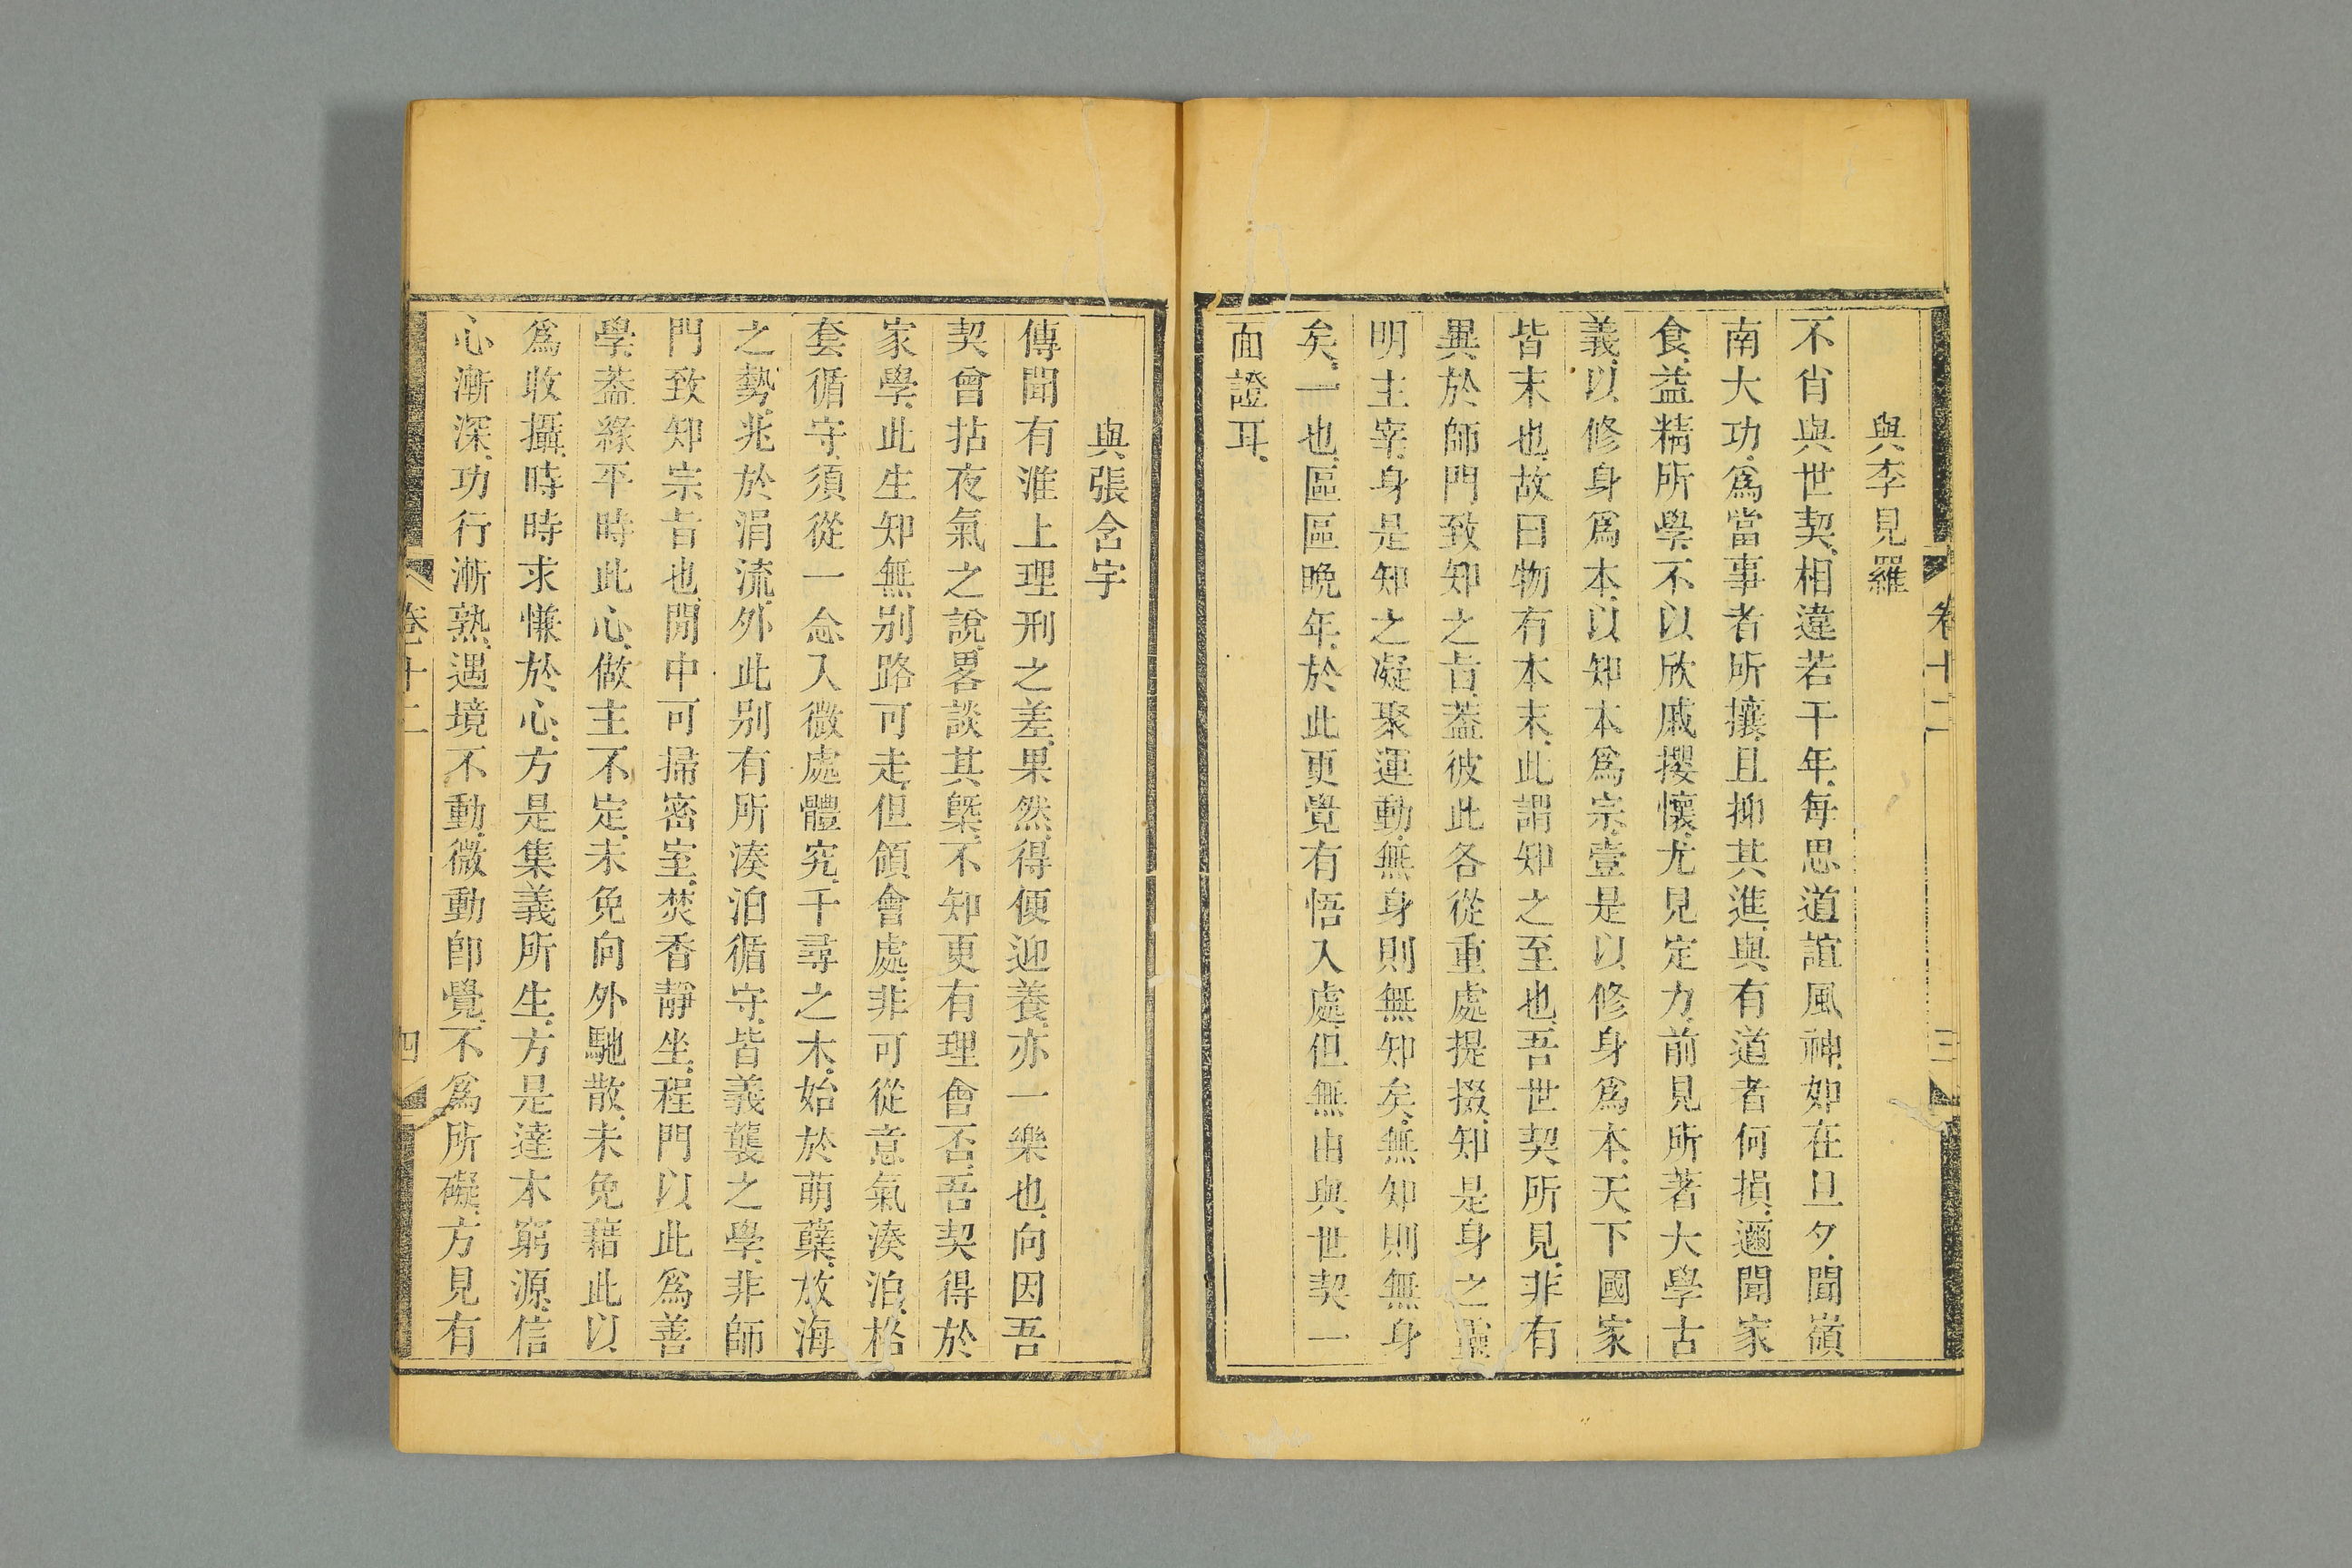 卷十二
三
與李見羅
不肖與世契相違若干年每思道誼風神如在旦夕聞嶺
南大功爲當事者所攘且抑其進與有道者何損邇聞家
食益精所學不以欣戚攖懷尤見定力前見所著大學古
義以修身爲本以知本爲宗壹是以修身爲本天下國家
皆末也故曰物有本末此謂知之至也吾世契所見非有
異於師門致知之旨葢彼此各從重處提掇知是身之靈
明主宰身是知之凝聚運動無身則無知矣無知則無身
矣一也區區晚年於此更覺有悟入處但無由與世契一
面證耳
與張含宇
傳聞有淮上理刑之差果然得便迎養亦一樂也向因吾
契曾拈夜氣之說畧談其槩不知更有理會否吾契得於
家學此生知無别路可走但領會處非可從意氣湊泊格
套循守須從一念入微處體究千尋之木始於萌蘖放海
之勢兆於涓流外此别有所湊泊循守皆義襲之學非師
門致知宗旨也閒中可掃密室焚香靜坐程門以此爲善
學葢緣平時此心做主不定未免向外馳散未免藉此以
爲收攝時時求慊於心方是集義所生方是達本窮源信
心漸深功行漸熟遇境不動微動卽覺不爲所礙方見有
卷十二
四